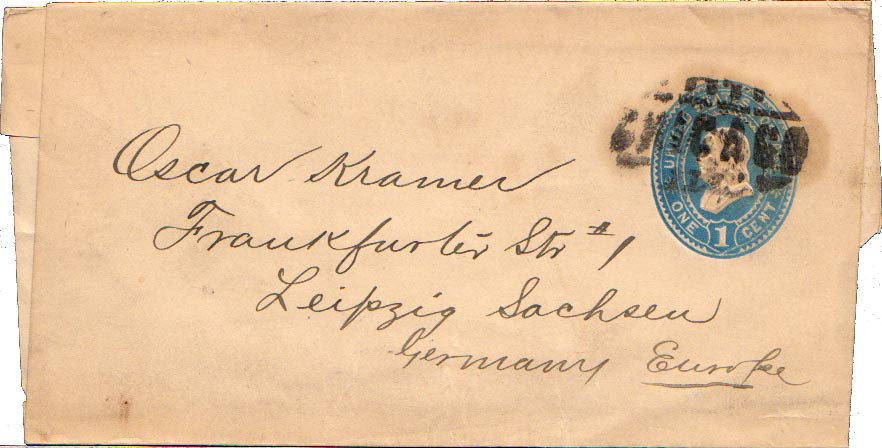 Oscar Kramer
Frankfurter Str # 1
Leipzig Sachsen
Germany Europe
UNITED STATES
CHICAGO
ONE 1 CENT